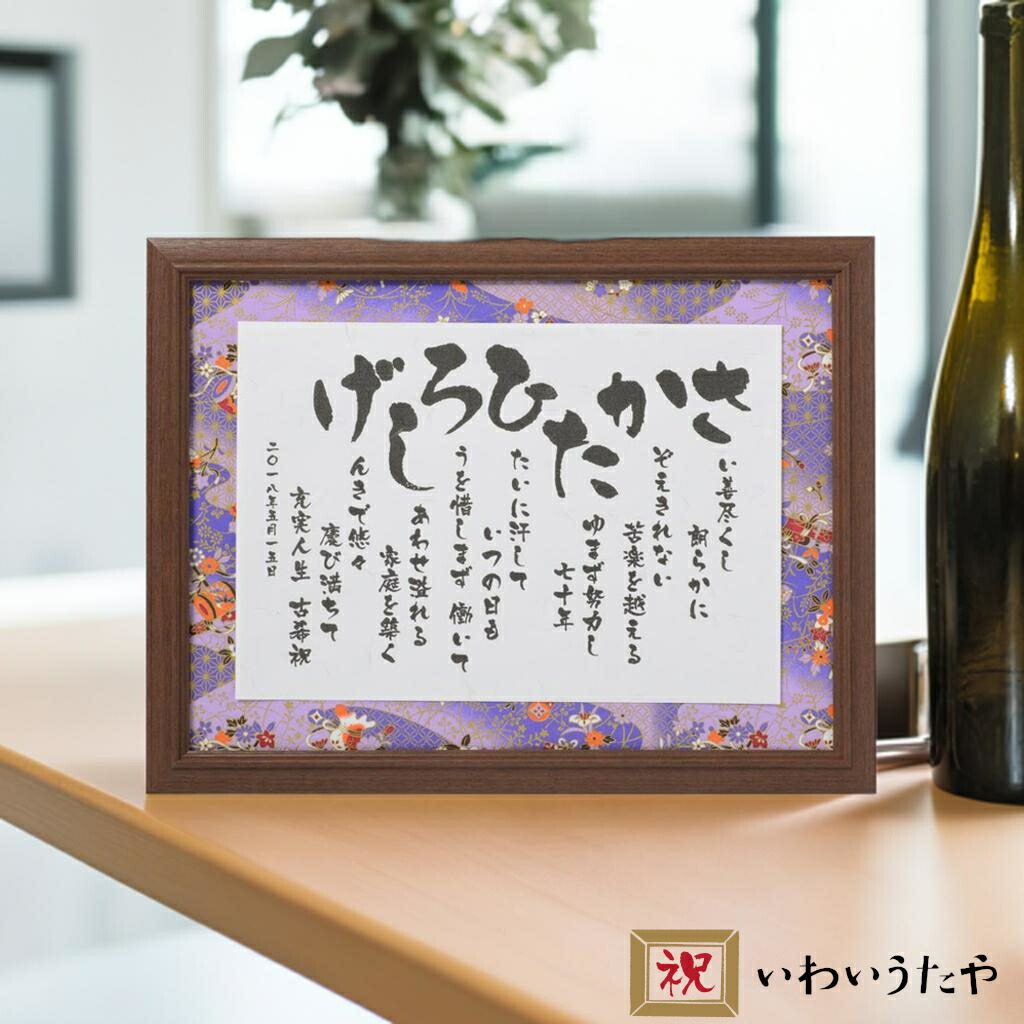 さい善尽くし
朗らかに
かぞえきれない
苦楽を越える
たゆまず努力し
七十年
ひたいに汗して
いつの日も
ろうを惜しまず 働いて
しあわせ溢れる
家庭を築く
げんきで悠々
慶び満ちて
充実人生 古希祝
二〇一八年五月一五日
祝 いわいうたや